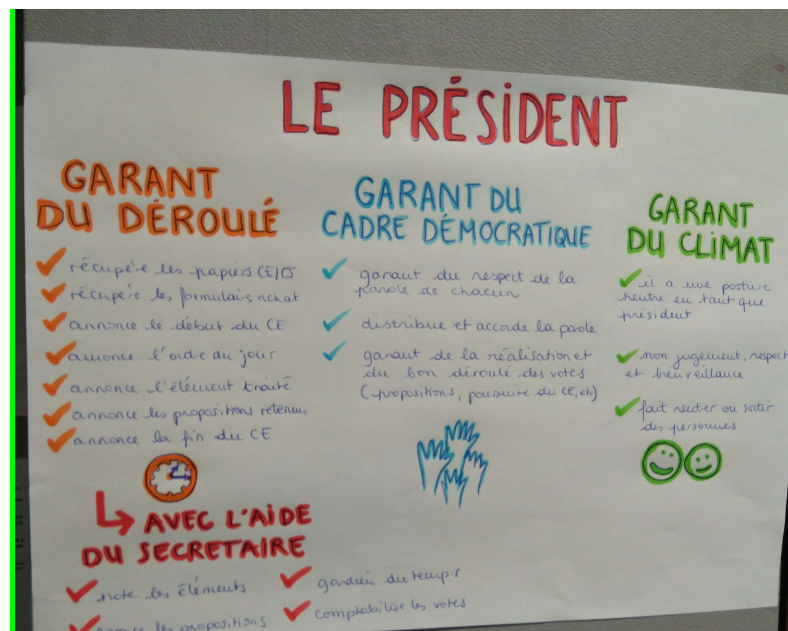 LE PRÉSIDENT
GARANT
DU DÉROULÉ
récupère les papiers CE/CS
récupère les formulaires achat
annonce le début du CE
annonce l'ordre du jour
annonce l'élément traité
annonce les propositions retenues
annonce la fin du CE
AVEC L'AIDE
DU SECRETAIRE
note les éléments
les propositions
gardien du temps
comptabilise les votes
GARANT DU
CADRE DÉMOCRATIQUE
garant du respect de la
parole de chacun
distribue et accorde la parole
garant de la réalisation et
du bon déroulé des votes
(propositions, poursuite du CE, etc)
GARANT
DU CLIMAT
il a une posture
neutre en tant que
président
non jugement, respect
et bienveillance
fait rentrer ou sortir
des personnes